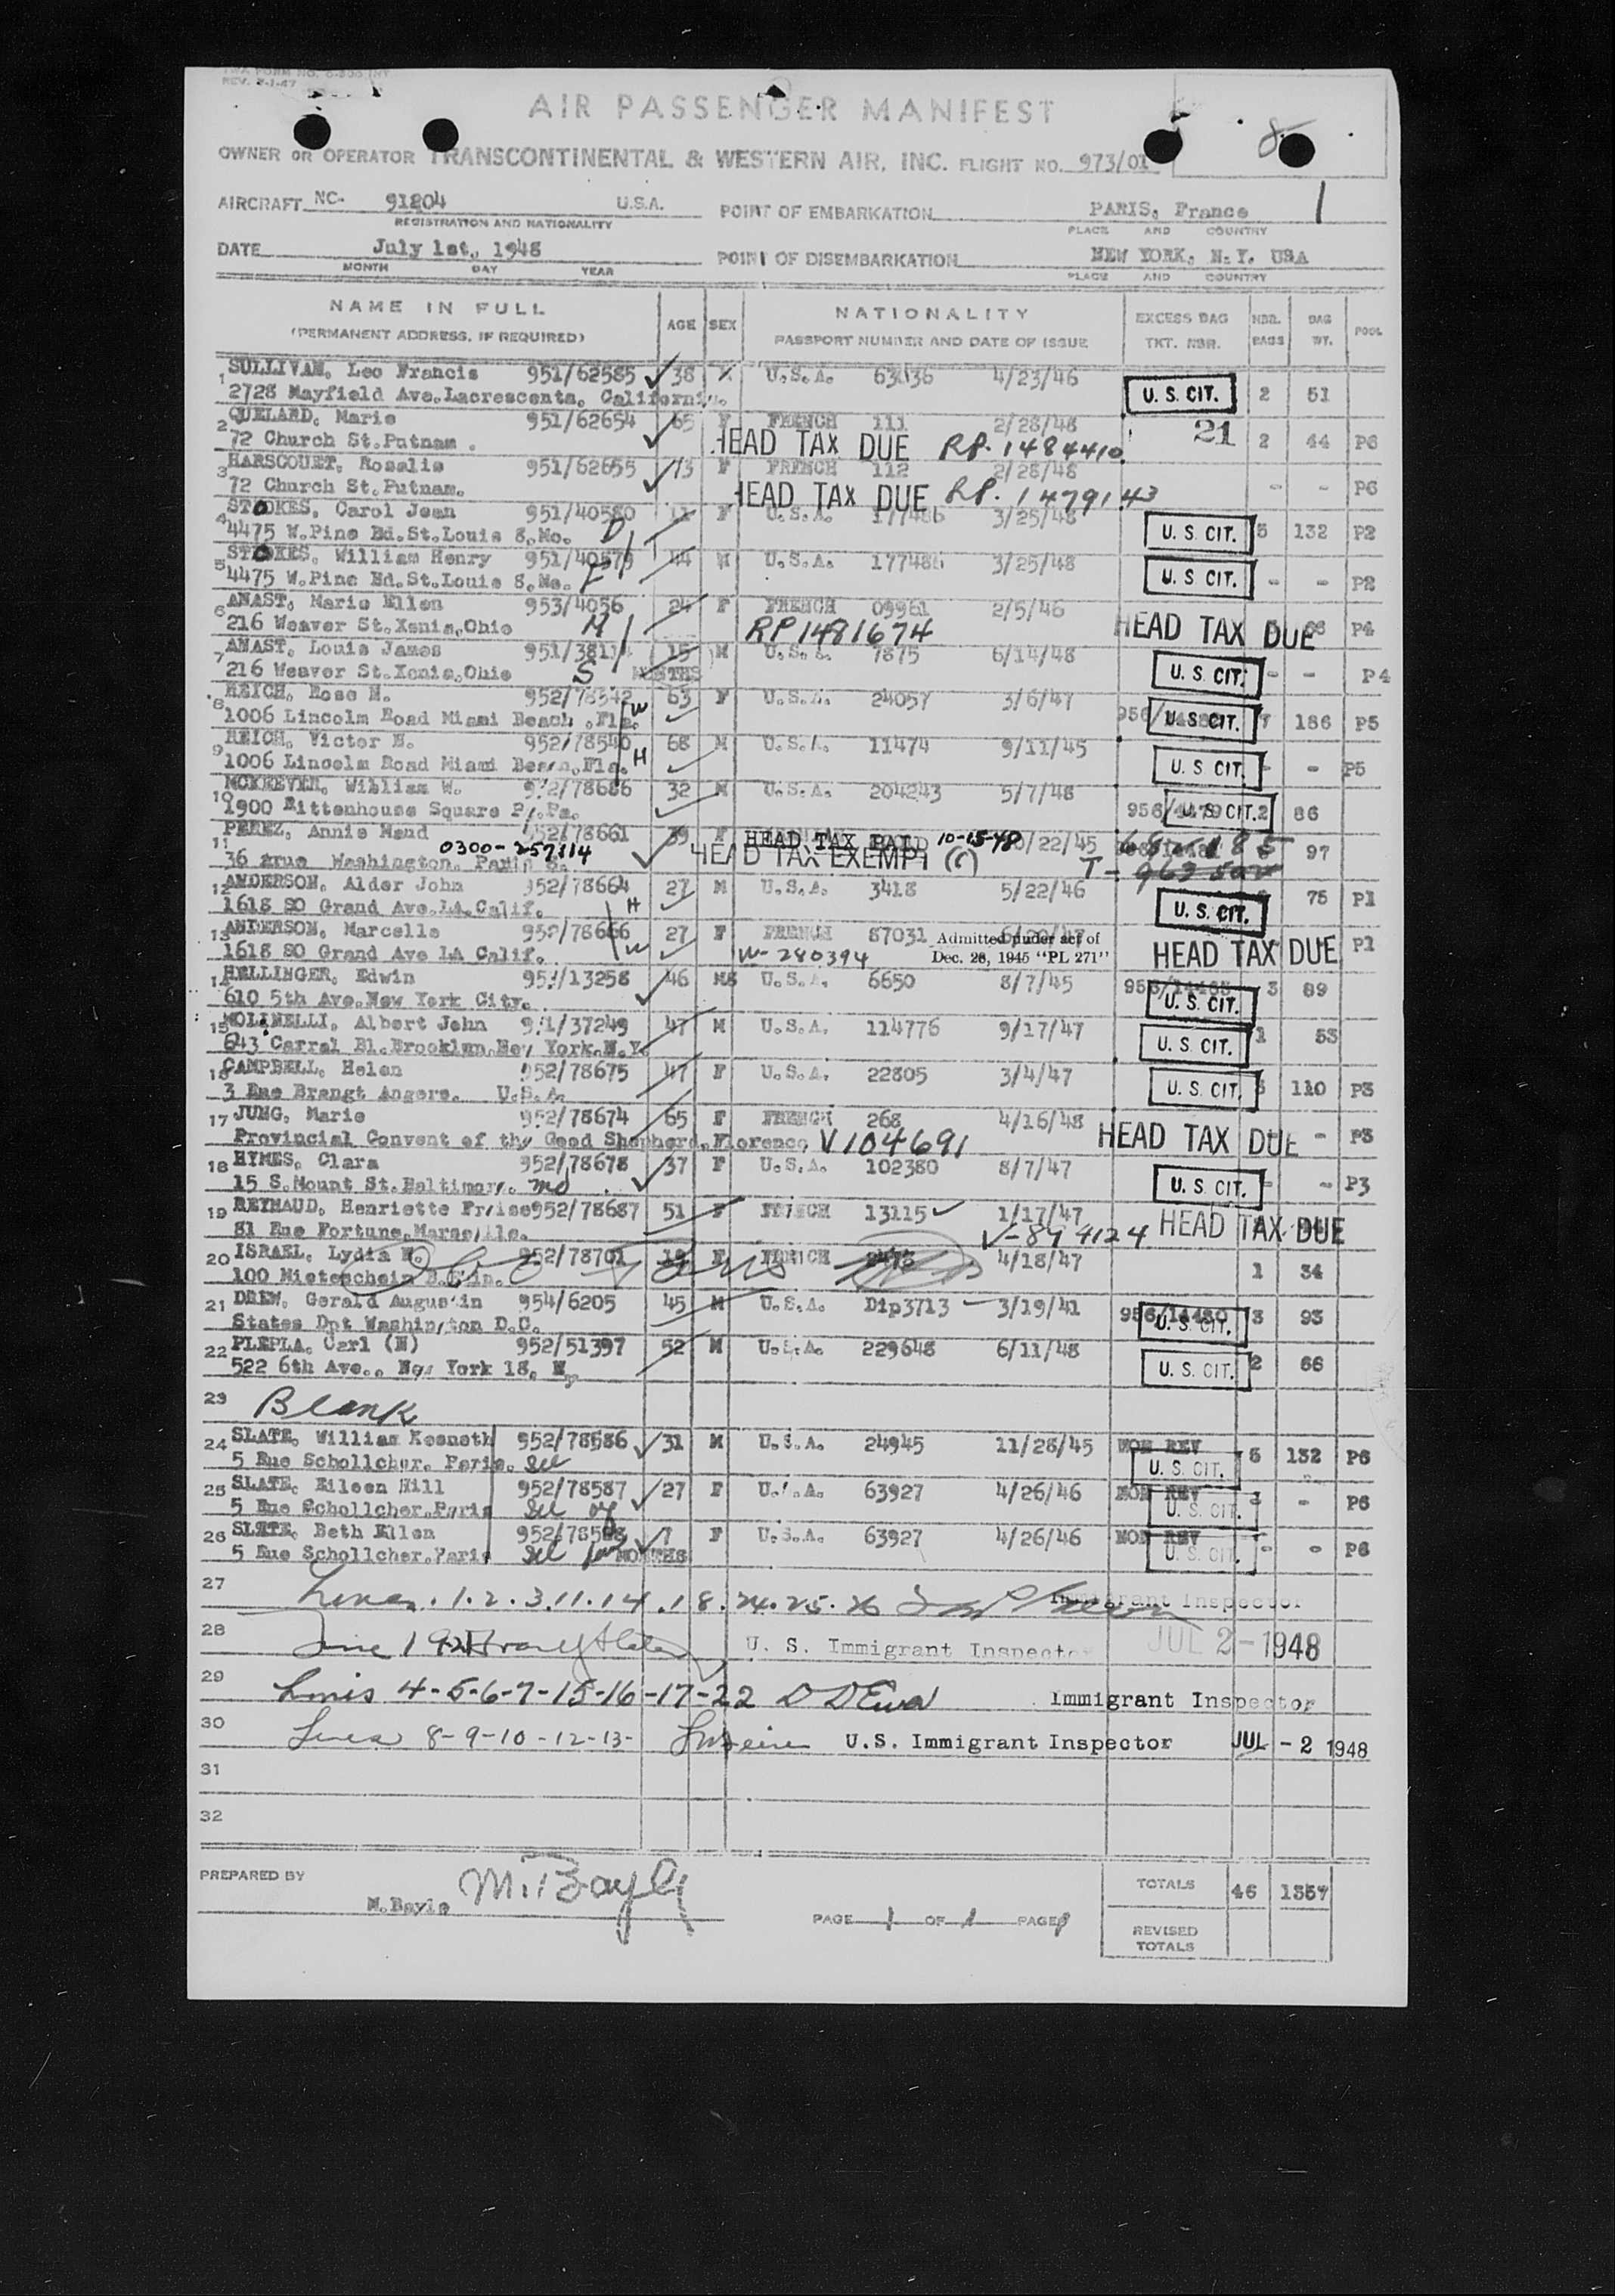 TWA FORM NO. 6-300 INT
REV. 2-1-47
AIR PASSENGER MANIFEST
8
OWNER OR OPERATOR TRANSCONTINENTAL & WESTERN AIR, INC. FLIGHT NO. 973/01
AIRCRAFT NC- 91204 U.S.A. POINT OF EMBARKATION PARIS, France 1
REGISTRATION AND NATIONALITY PLACE AND COUNTRY
DATE July 1st, 1948 POINT OF DISEMBARKATION NEW YORK, N.Y. USA
MONTH DAY YEAR PLACE AND COUNTRY
NAME IN FULL AGE SEX NATIONALITY EXCESS BAG NBR. BAG POOL
(PERMANENT ADDRESS, IF REQUIRED) PASSPORT NUMBER AND DATE OF ISSUE TKT. NBR. BAGS WT.
1 SULLIVAN, Leo Francis 951/62585 38 U.S.A. 4/23/46
2728 Mayfield Ave.Lacrescenta, California. U. S. CIT. 2 51
2 QUELARD, Marie 951/62654 65 F FRENCH 111 2/28/48 21
72 Church St.Putnam . HEAD TAX DUE RP. 1484410 2 44 P6
3 HARSCOUET, Rosalie 951/62655 73 F FRENCH 112 2/28/48
72 Church St.Putnam. HEAD TAX DUE RP. 1479143 - - P6
4 STOKES, Carol Jean 951/40580 11 F U.S.A. 177486 3/25/48
4475 W.Pine Bd.St.Louis 8,Mo. D U. S. CIT. 5 132 P2
5 STOKES, William Henry 951/40579 44 M U.S.A. 177486 3/25/48
4475 W.Pine Bd.St.Louis 8,Mo. F U. S. CIT. - - P2
6 ANAST, Marie Ellen 953/4056 24 F FRENCH 09961 2/5/46
216 Weaver St.Xenia,Ohio M RP1481674 HEAD TAX DUE 66 P4
7 ANAST, Louis James 15 M U.S.A. 7875 6/14/48
216 Weaver St.Xenia,Ohio S MONTHS U. S. CIT. - - P4
8 REICH, Rose H. 952/78542 63 F U.S.A. 24057 3/6/47
1006 Lincolm Road Miami Beach ,Fla. W U. S. CIT. 7 186 P5
9 REICH, Victor H. 952/78540 68 M U.S.A. 11474 9/11/45
1006 Lincolm Road Miami Beach,Fla. H U. S. CIT. - - P5
10 MCKEEVER, William W. 952/78686 32 M U.S.A. 204243 5/7/48
1900 Rittenhouse Square P/.Pa. U. S. CIT. 2 86
11 PEREZ, Annie Maud 952/78661 39 F HEAD TAX PAID 10-15-48 10/22/45
0300-257114 HEAD TAX EXEMPT (6) 97
36 Washington. Paris 8. T-
12 ANDERSON, Alder John 952/78664 27 M U.S.A. 3418 5/22/46
1618 SO Grand Ave.LA.Calif. H U. S. CIT. 75 P1
13 ANDERSON, Marcelle 952/78666 27 F FRENCH 87031 6/20/47 Admitted under act of
1618 SO Grand Ave LA Calif. W W-280394 Dec. 28, 1945 "PL 271" HEAD TAX DUE P1
14 HELLINGER, Edwin 951/13258 46 U.S.A. 6650 8/7/45 3 89
610 5th Ave.New York City. U. S. CIT.
15 MOLINELLI, Albert John 951/37249 47 M U.S.A. 114776 9/17/47
643 Carral Bl.Brooklyn.New York.N.Y. U. S. CIT. 1 53
16 CAMPBELL, Helen 952/78675 47 F U.S.A. 22805 3/4/47
3 Rue Brangt Angers. U.S.A. U. S. CIT. 5 110 P3
17 JUNG, Marie 952/78674 65 F FRENCH 268 4/16/48
Provincial Convent of thy Good Shepherd.Florence, V104691 HEAD TAX DUE - P3
18 HYMES, Clara 952/78678 37 F U.S.A. 102380 8/7/47
15 S.Mount St.Baltimory. Md U. S. CIT. - - P3
19 REYNAUD, Henriette 952/78687 51 F FRENCH 13115 1/17/47
81 Rue Fortune.Marseille. V-894124 HEAD TAX DUE
20 ISRAEL, Lydia 952/78701 19 F 4/18/47
100 Mieteschein 1 34
21 DREW, Gerald Augustin 954/6205 45 M U.S.A. Dip3713 3/19/41 956/14480 3 93
States Dpt Washington D.C. U. S. CIT.
22 PLEPLA, Carl (N) 952/51397 52 M U.S.A. 229648 6/11/48
522 6th Ave., New York 18, N U. S. CIT. 2 66
23 Blank
24 SLATE, William Kenneth 952/78586 31 M U.S.A. 24945 11/28/45 NON REV 5 132 P6
5 Rue Schollcher. Paris. U. S. CIT.
25 SLATE, Eileen Hill 952/78587 27 F U.S.A. 63927 4/26/46 NON REV - P6
5 Rue Schollcher.Paris U. S. CIT.
26 SLATE, Beth Ellen 952/78588 7 F U.S.A. 63927 4/26/46 NON REV - - P6
5 Rue Schollcher.Paris MONTHS U. S. CIT.
27 Lines . 1. 2. 3. 11. 14 . 18. 24. 25. 26 Immigrant Inspector
28 Line 19 U. S. Immigrant Inspector JUL 2-1948
29 Lines 4-5-6-7-15-16-17-22 Immigrant Inspector
30 Lines 8-9-10-12-13- U.S. Immigrant Inspector JUL - 2 1948
31
32
PREPARED BY M. Bayle TOTALS 46 1357
M.Bayle PAGE 1 OF 1 PAGES REVISED
TOTALS